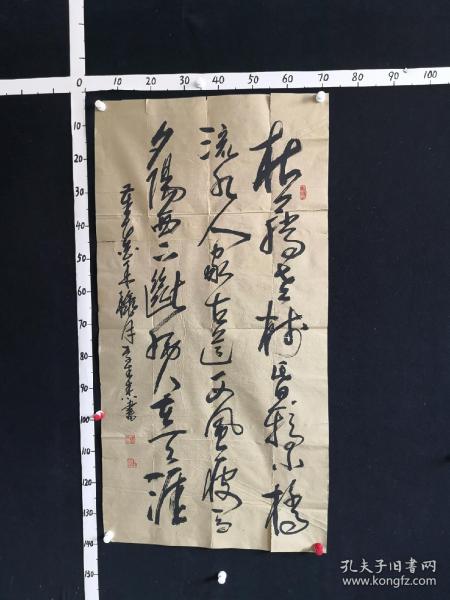 枯藤老树昏鸦小桥
流水人家古道西风瘦马
夕陽西下斷腸人在天涯
书
孔夫子旧书网
www.kongfz.com
0 10 20 30 40 50 60 70 80 90 100
10
20
30
40
50
60
70
80
90
100
110
120
130
140
150